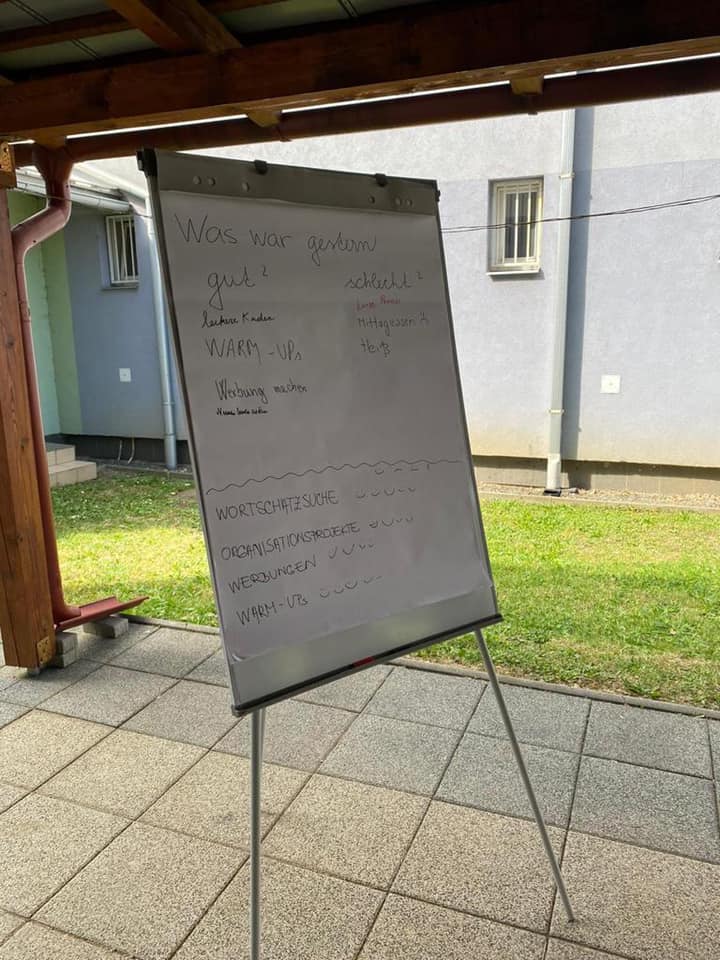 Was war gestern
gut ?
schlecht ?
leckere Kuchen
WARM-UPs
Werbung machen
kurze Pausen
Mittagessen
Heiß
WORTSCHATZSUCHE
ORGANISATIONSPROJEKTE
WERBUNGEN
WARM-UPs